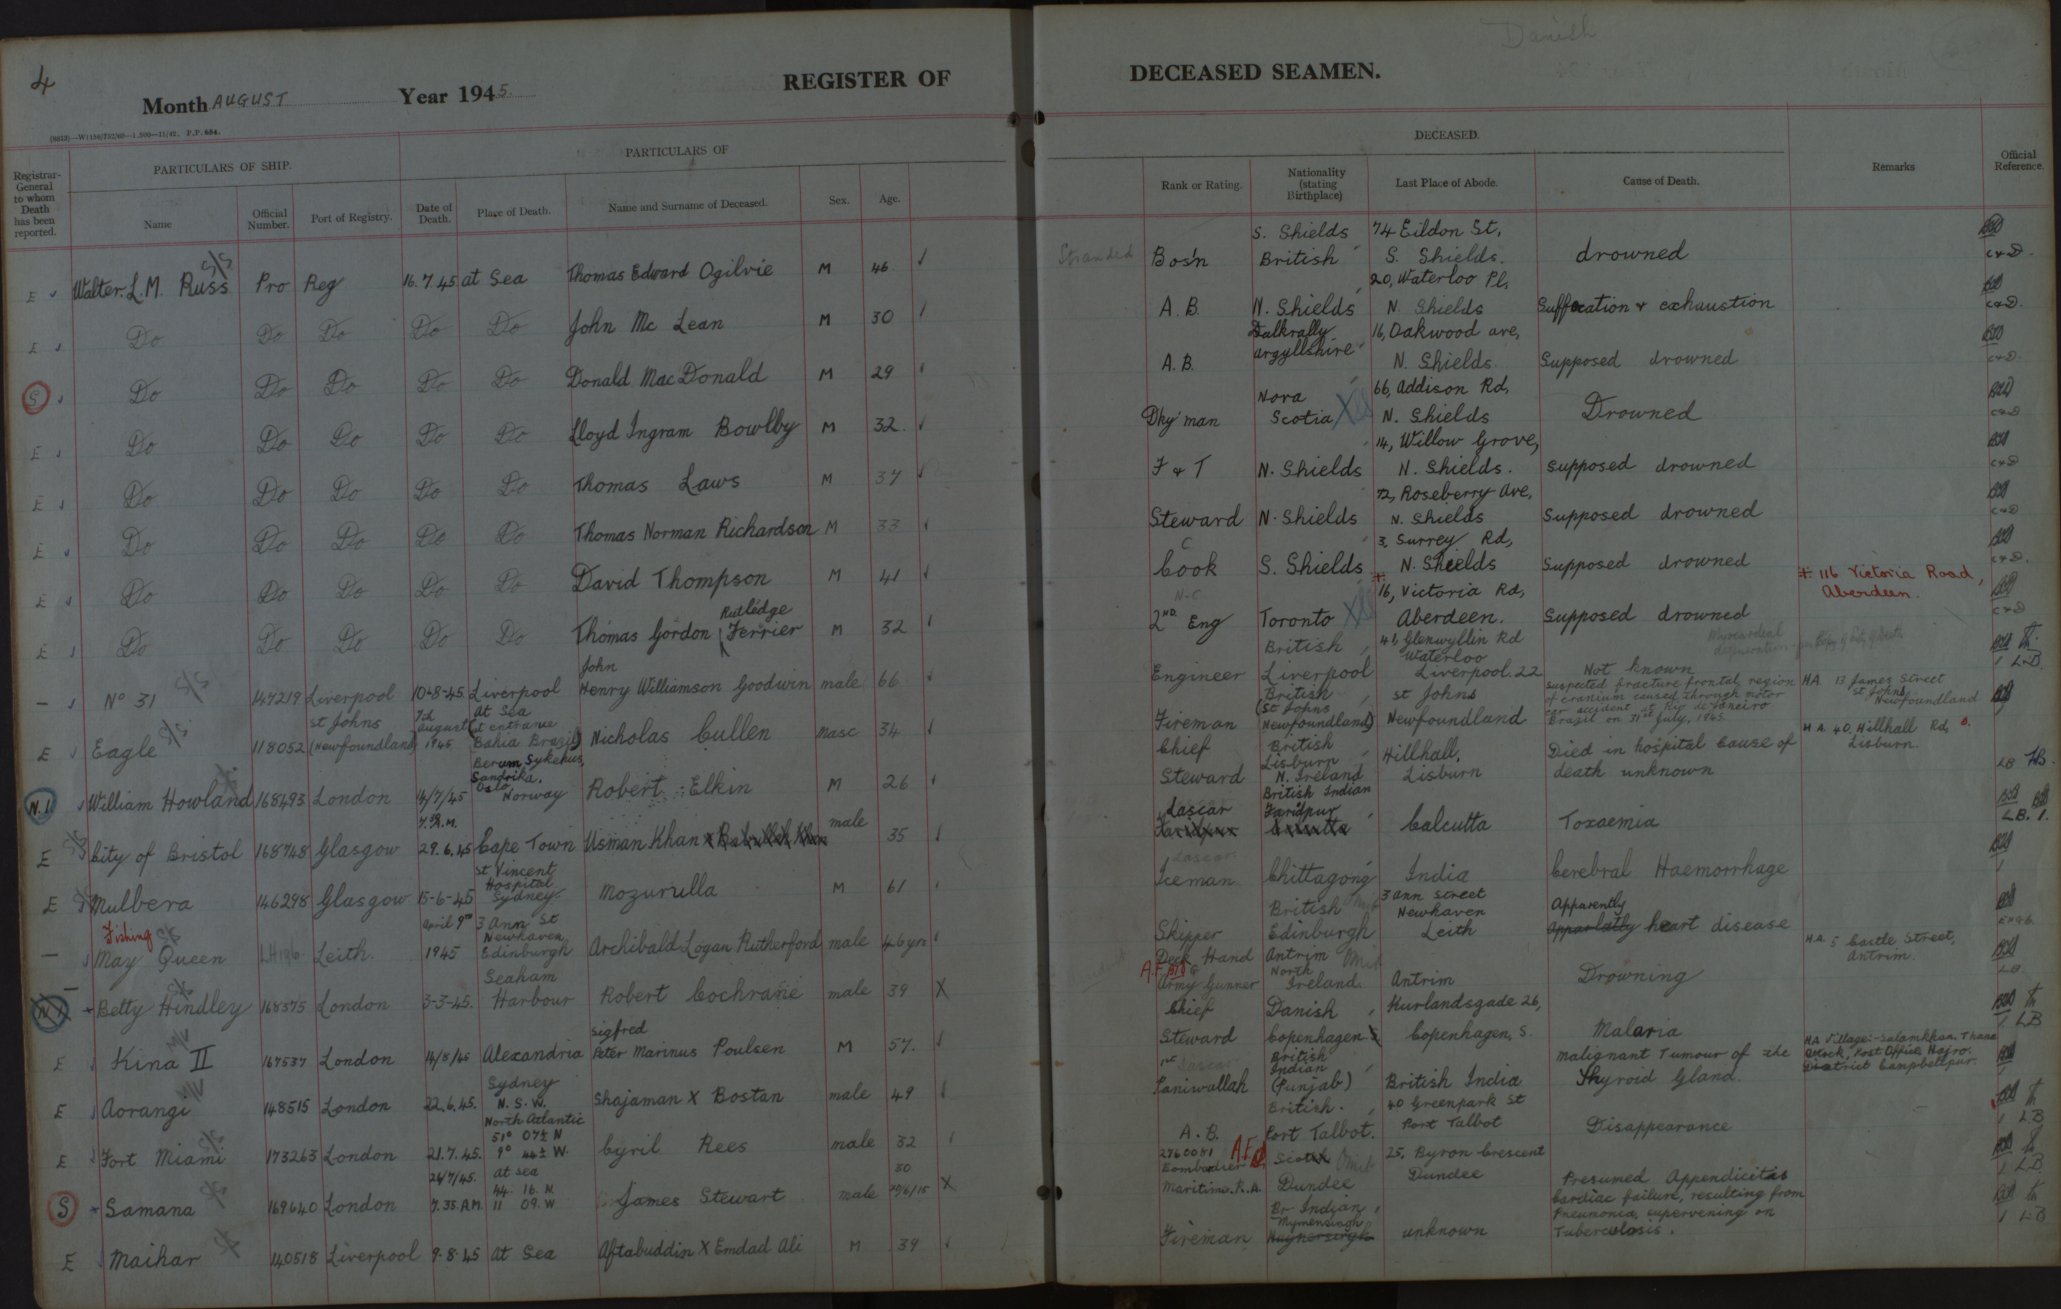 4
Month AUGUST Year 1945. REGISTER OF DECEASED SEAMEN.
Danish
(8813)—W1156/752/60—1,500—11/42. P.P. 654.
PARTICULARS OF SHIP. PARTICULARS OF DECEASED.
Registrar-General to whom Death has been reported. Name Official Number. Port of Registry. Date of Death. Place of Death. Name and Surname of Deceased. Sex. Age. Rank or Rating. Nationality (stating Birthplace) Last Place of Abode. Cause of Death. Remarks Official Reference.
E Walter. L.M. Russ S/S Pro Reg 16.7.45 at Sea Thomas Edward Ogilvie M 46 Stranded Bos'n S. Shields British 74 Eildon St, S. Shields. drowned C&D.
E Do Do Do Do Do John Mc Lean M 30 A.B. N. Shields 20, Waterloo Pl, N. Shields Suffocation & exhaustion C&D.
S Do Do Do Do Do Donald MacDonald M 29 A.B. Dalkrally Argyllshire 16, Oakwood ave, N. Shields Supposed drowned C&D.
E Do Do Do Do Do Lloyd Ingram Bowlby M 32. Dky'man Nova Scotia 66, Addison Rd, N. Shields Drowned C&D
E Do Do Do Do Do Thomas Laws M 37 F & T N. Shields 14, Willow Grove, N. Shields. Supposed drowned C&D
E Do Do Do Do Do Thomas Norman Richardson M 33 Steward N. Shields 72, Roseberry Ave, N. Shields Supposed drowned C&D
E Do Do Do Do Do David Thompson M 41 Cook S. Shields 3, Surrey Rd, N. Shields Supposed drowned C&D.
E Do Do Do Do Do Thomas Gordon (Rutledge Ferrier M 32 2ND Eng Toronto # 16, Victoria Rd, Aberdeen. Supposed drowned # 116 Victoria Road, Aberdeen. C&D
— No 31 S/S 147219 Liverpool 10-8-45 Liverpool John Henry Williamson Goodwin male 66 Engineer British Liverpool 41, Glenwyllin Rd Waterloo Liverpool. 22 Not known Myocardial degeneration 1 LD.
E Eagle S/S. 118052 St Johns (Newfoundland) 7th August 1945 At Sea (at entrance Bahia Brazil) Nicholas Cullen masc 34 Fireman British (St Johns Newfoundland) St Johns Newfoundland Suspected fracture frontal region of cranium caused through motor car accident at Rio de Janeiro Brazil on 31st July, 1945 HA. 13 James Street St Johns Newfoundland
N.I William Howland 168493 London 14/7/45 Berum Sykehus, Sandvika, Oslo, Norway Robert Elkin M 26 Chief Steward British Lisburn N. Ireland Hillhall, Lisburn Died in hospital cause of death unknown H A. 40, Hillhall Rd, Lisburn. LB
E S/S City of Bristol 168748 Glasgow 29.6.45 Cape Town Usman Khan male 35 Lascar British Indian Faridpur Calcutta Toxaemia LB. 1.
E Mulbera 146298 Glasgow 15-6-45 St Vincent Hospital Sydney Mozurulla M 61 Lascar Iceman Chittagong India Cerebral Haemorrhage 1
— Fishing May Queen LH196 Leith. April 9th 1945 3 Ann St Newhaven Edinburgh Archibald Logan Rutherford male 46 yrs Skipper British Edinburgh 3 Ann Street Newhaven Leith Apparently heart disease
N.I Betty Hindley 168375 London 3-3-45. Seaham Harbour Robert Cochrane male 39 X Deck Hand Army Gunner Antrim North Ireland Omit Antrim Drowning H.A. 5 Castle Street, Antrim. LB
E Kina II MV 167537 London 14/8/45 Alexandria Sigfred Peter Marinus Poulsen M 57. Chief Steward Danish Copenhagen. Hurlandsgade 26, Copenhagen, S. Malaria 1 LB
E Aorangi MV 148515 London 22.6.45. Sydney N.S.W. Shajaman X Bostan male 49 1st Paniwallah British Indian (Punjab) British India Malignant Tumour of the Thyroid Gland. HA Village:- Salamkhan, Thana Attock, Post Office Hajro. District Campbellpur. 1
E Fort Miami S/S 173263 London 21.7.45. North Atlantic 51° 07½ N 9° 44½ W. Cyril Rees male 32 A.B. British. Port Talbot. 40 Greenpark St Port Talbot Disappearance 1 LB
S Samana S/S 169640 London 24/7/45. 7.35. A.M. at sea 44. 16. N 11 09. W James Stewart male 30 X 2760081 Bombardier Maritime. R.A. A.F. Dundee Omit 25, Byron Crescent Dundee Presumed Appendicitis 1 LB
E Maihar 140518 Liverpool 9-8-45 at Sea Aftabuddin X Emdad Ali M 39 Fireman Br Indian, Mymensingh unknown Cardiac failure, resulting from Pneumonia, supervening on Tuberculosis. 1 LB